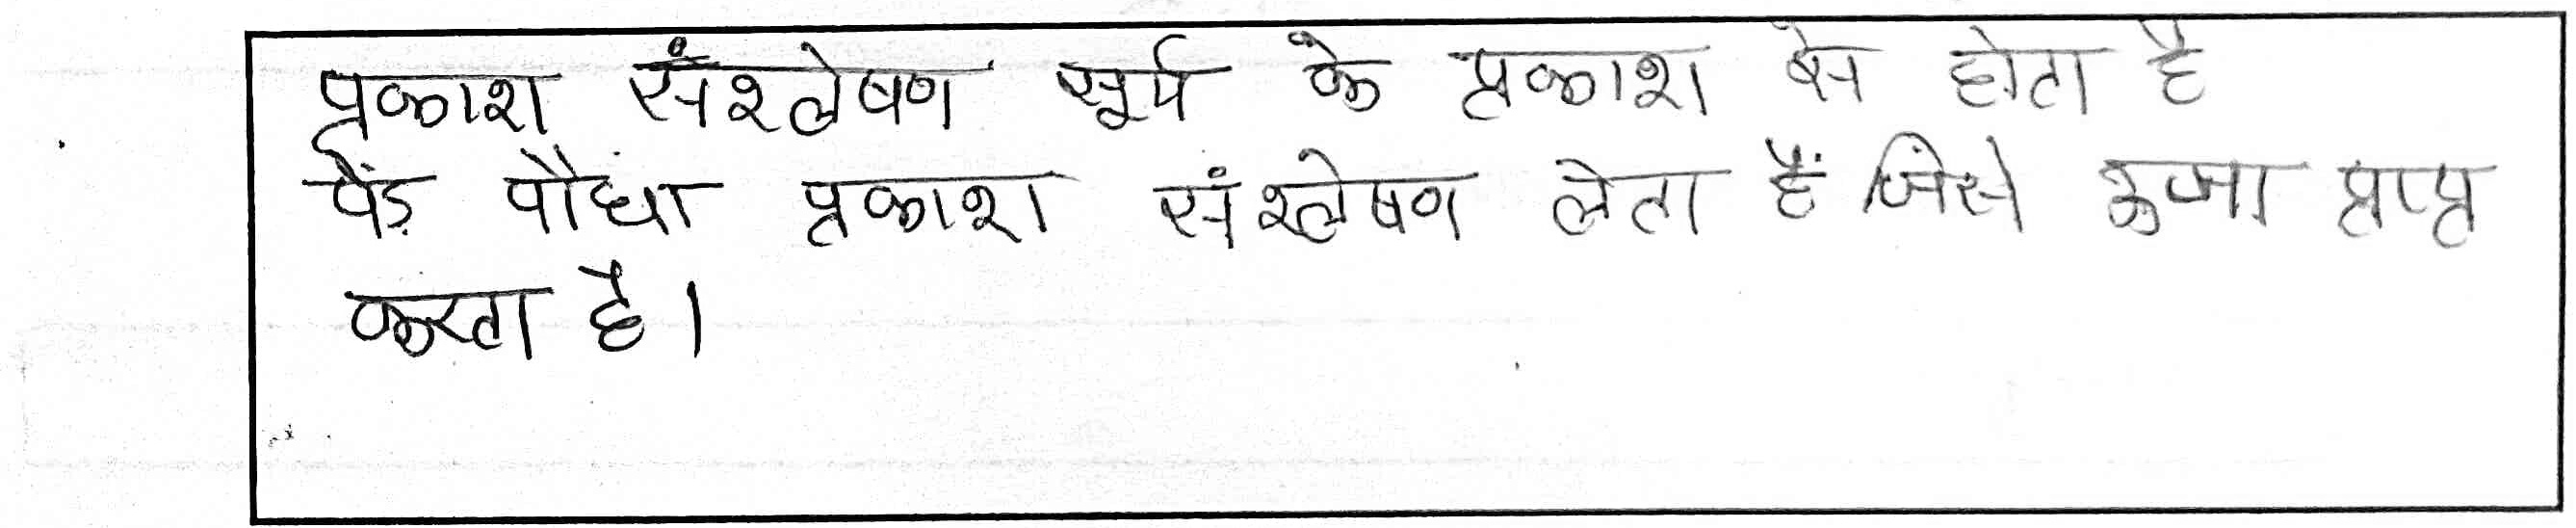 प्रकाश संश्लेषण सूर्य के प्रकाश से होता है
पेंड़ पौधा प्रकाश संश्लेषण लेता हैं जिंसे ऊजा प्राप्र
करता है।